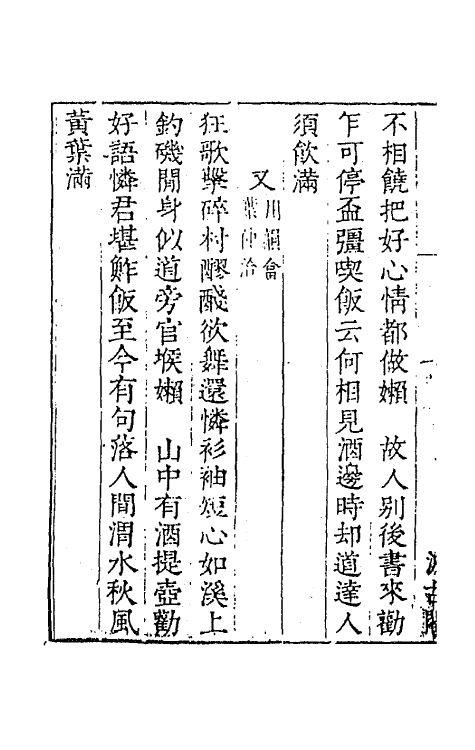 不相饒把好心情都做嬾　故人别後書來勸
乍可停盃彊喫飯云何相見酒邊時却道達人
須飲滿
又
用韻畣
葉仲洽
狂歌擊碎村醪醆欲舞還憐衫袖短心如溪上
釣磯閒身似道旁官堠嬾　山中有酒提壺勸
好語憐君堪鮓飯至今有句落人間渭水秋風
黃葉滿